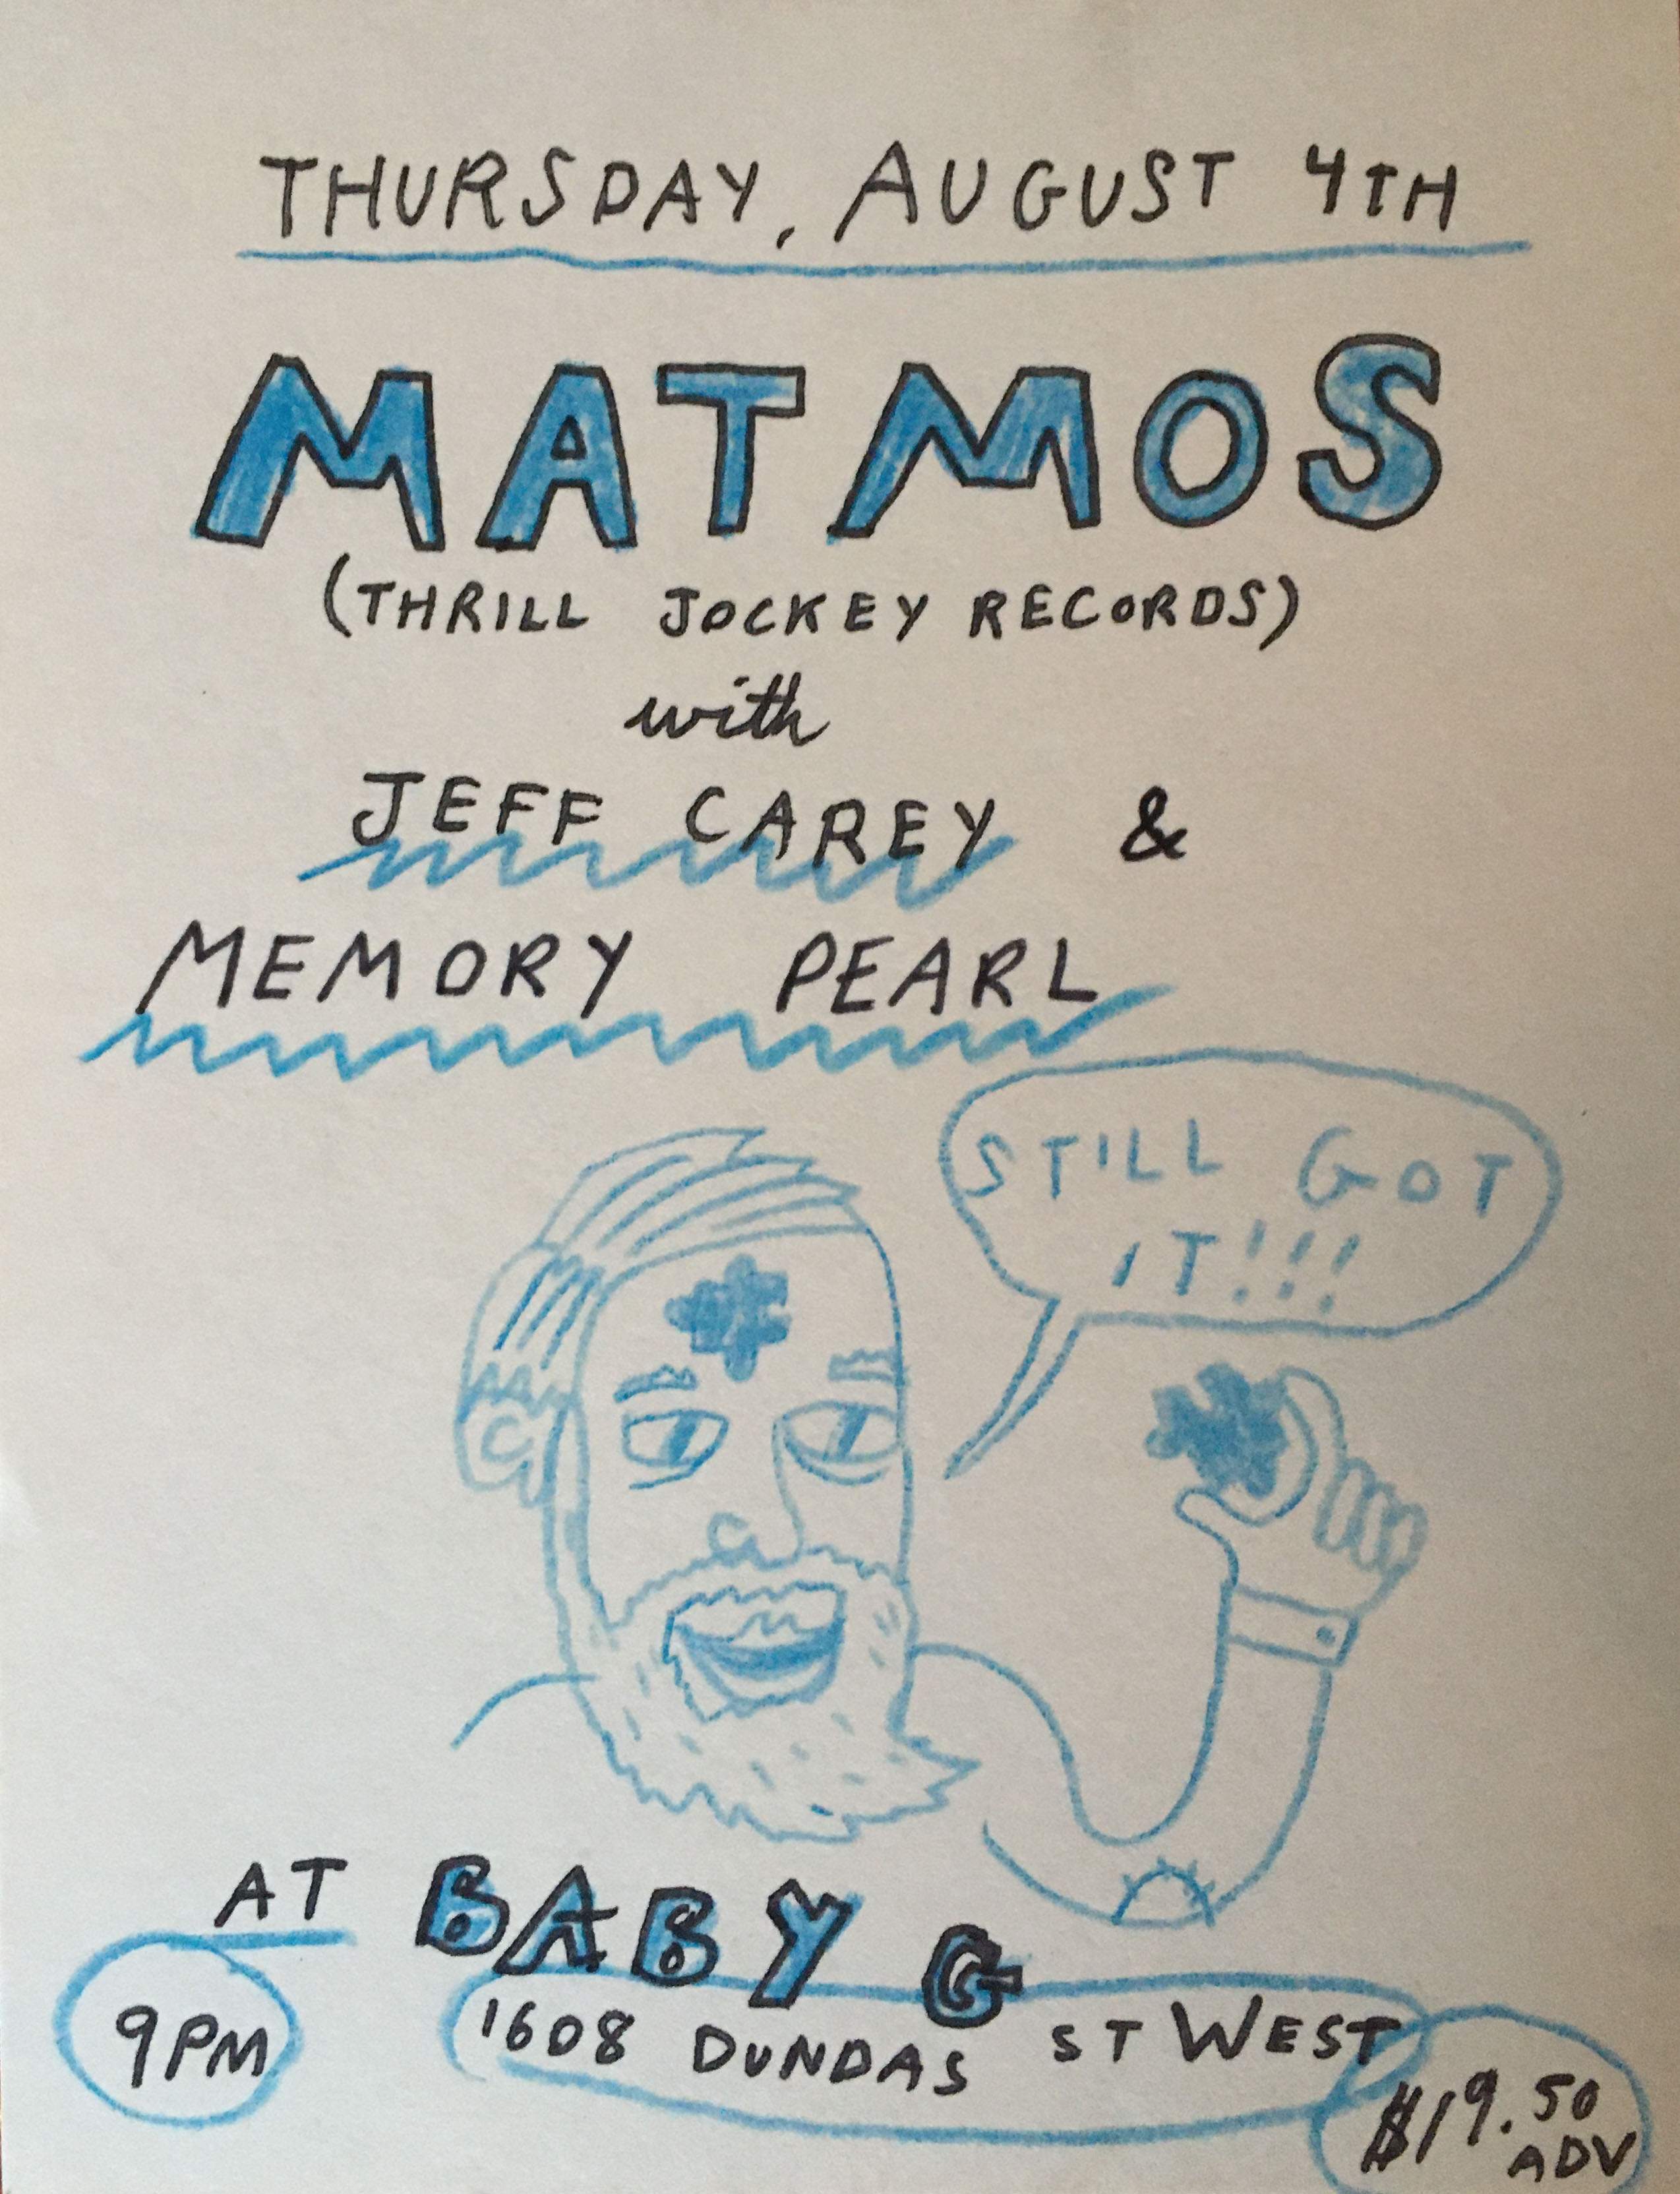 THURSDAY, AUGUST 4TH
MATMOS
(THRILL JOCKEY RECORDS)
with
JEFF CAREY &
MEMORY PEARL
STILL GOT
IT!!!
AT BABY G
9PM
1608 DUNDAS ST WEST
$19.50
ADV